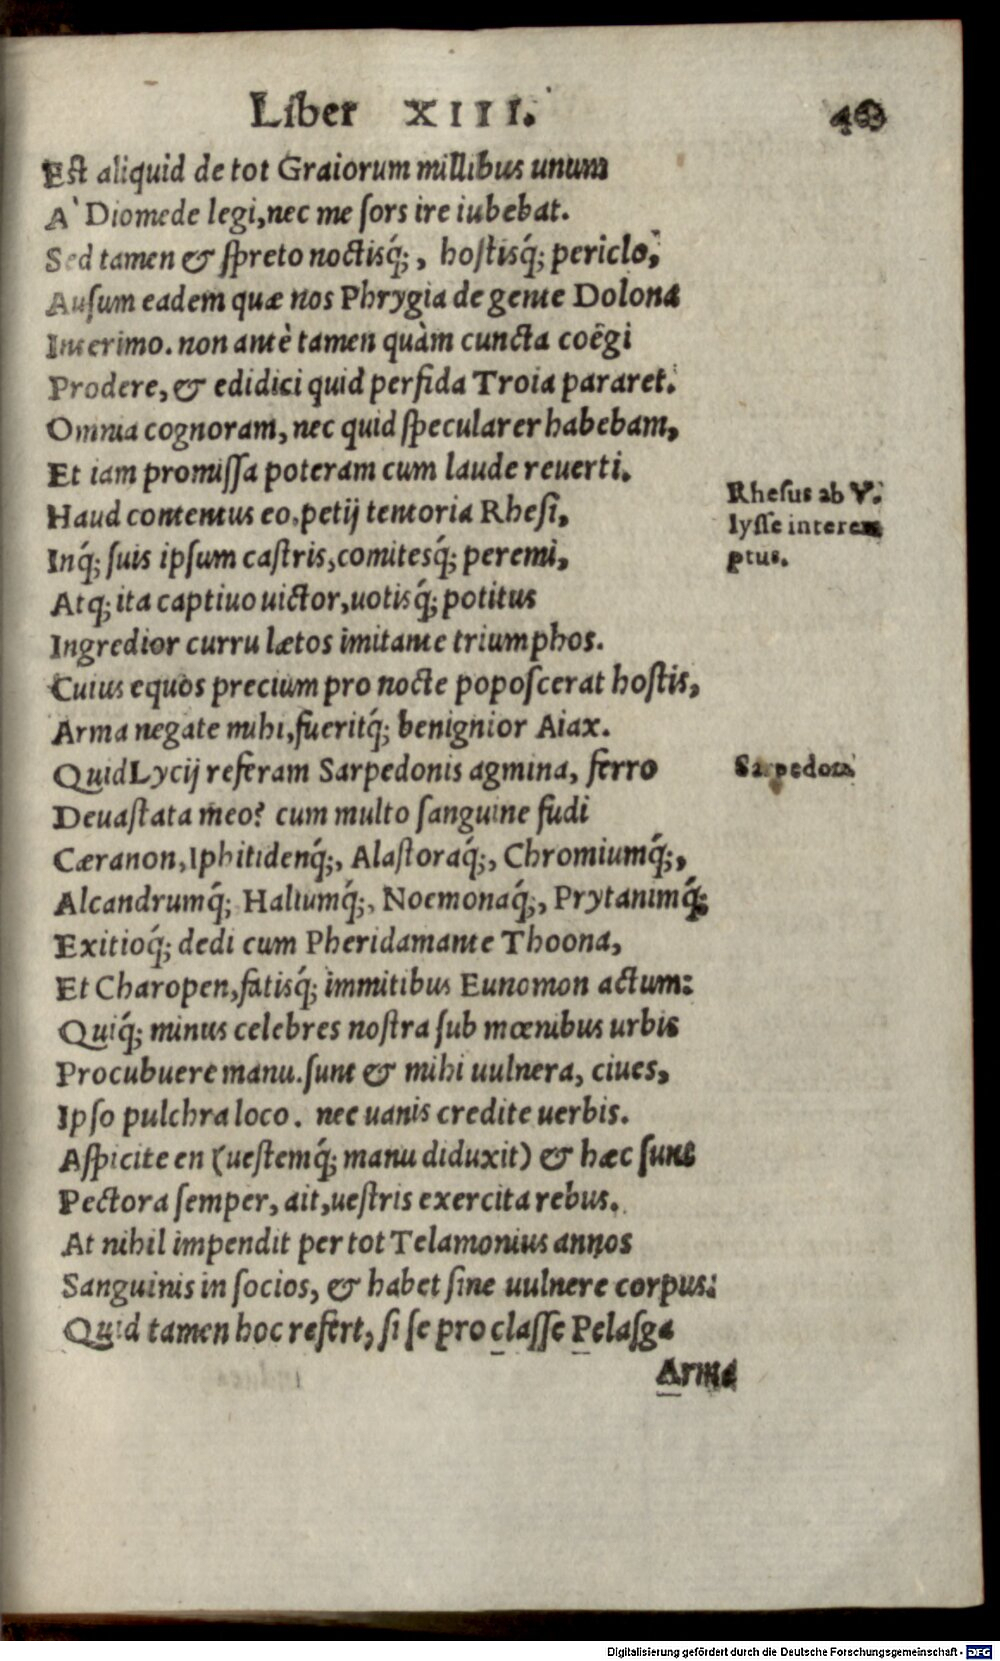 Liber XIII.
Est aliquid de tot Graiorum millibus unum
A' Diomede legi, nec me ſors ire iubebat.
Sed tamen & ſpreto noctisq́;, hoſtisq́; periclo,
Auſum eadem quæ nos Phrygia de gente Dolona
Interimo. non antè tamen quàm cuncta coëgi
Prodere, & edidici quid perfida Troia pararet.
Omnia cognoram, nec quid ſpecularer habebam,
Et iam promiſſa poteram cum laude reuerti.
Haud contentus eo, petij tentoria Rheſi,
Rheſus ab V.
lyſſe interem
ptus.
Inq́; ſuis ipſum caſtris, comitesq́; peremi,
Atq; ita captiuo uictor, uotisq́; potitus
Ingredior curru lætos imitante triumphos.
Cuius equos precium pro nocte popoſcerat hoſtis,
Arma negate mihi, fueritq́; benignior Aiax.
Quid Lycij referam Sarpedonis agmina, ferro
Sarpedon
Deuaſtata meo? cum multo ſanguine fudi
Cæranon, Iphitidenq́;, Alaſtoraq́;, Chromiumq́;,
Alcandrumq́; Haliumq́;, Noemonaq́;, Prytanimq́;
Exitioq́; dedi cum Pheridamante Thoona,
Et Charopen, fatisq́; immitibus Eunomon actum:
Quiq́; minus celebres noſtra ſub mœnibus urbis
Procubuere manu. ſunt & mihi uulnera, ciues,
Ipſo pulchra loco. nec uanis credite uerbis.
Aſpicite en (ueſtemq́; manu diduxit) & hæc ſunt
Pectora ſemper, ait, ueſtris exercita rebus.
At nihil impendit per tot Telamonius annos
Sanguinis in ſocios, & habet ſine uulnere corpus:
Quid tamen hoc refert, ſi ſe pro claſſe Pelaſga
Arma
Digitalisierung gefördert durch die Deutsche Forschungsgemeinschaft - DFG